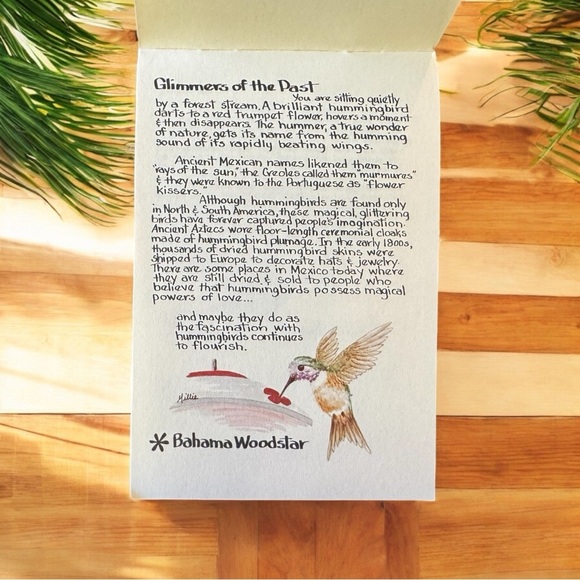 Glimmers of the Past
You are sitting quietly
by a forest stream. A brilliant hummingbird
darts to a red trumpet flower, hovers a moment
& then disappears. The hummer, a true wonder
of nature, gets its name from the humming
sound of its rapidly beating wings.
Ancient Mexican names likened them to
"rays of the sun," the Creoles called them "murmures"
& they were known to the Portuguese as "flower
kissers."
Although hummingbirds are found only
in North & South America, these magical, glittering
birds have forever captured people's imagination.
Ancient Aztecs wore floor-length ceremonial cloaks
made of hummingbird plumage. In the early 1800s,
thousands of dried hummingbird skins were
shipped to Europe to decorate hats & jewelry.
There are some places in Mexico today where
they are still dried & sold to people who
believe that hummingbirds possess magical
powers of love...
and maybe they do as
the fascination with
hummingbirds continues
to flourish.
Millie
* Bahama Woodstar